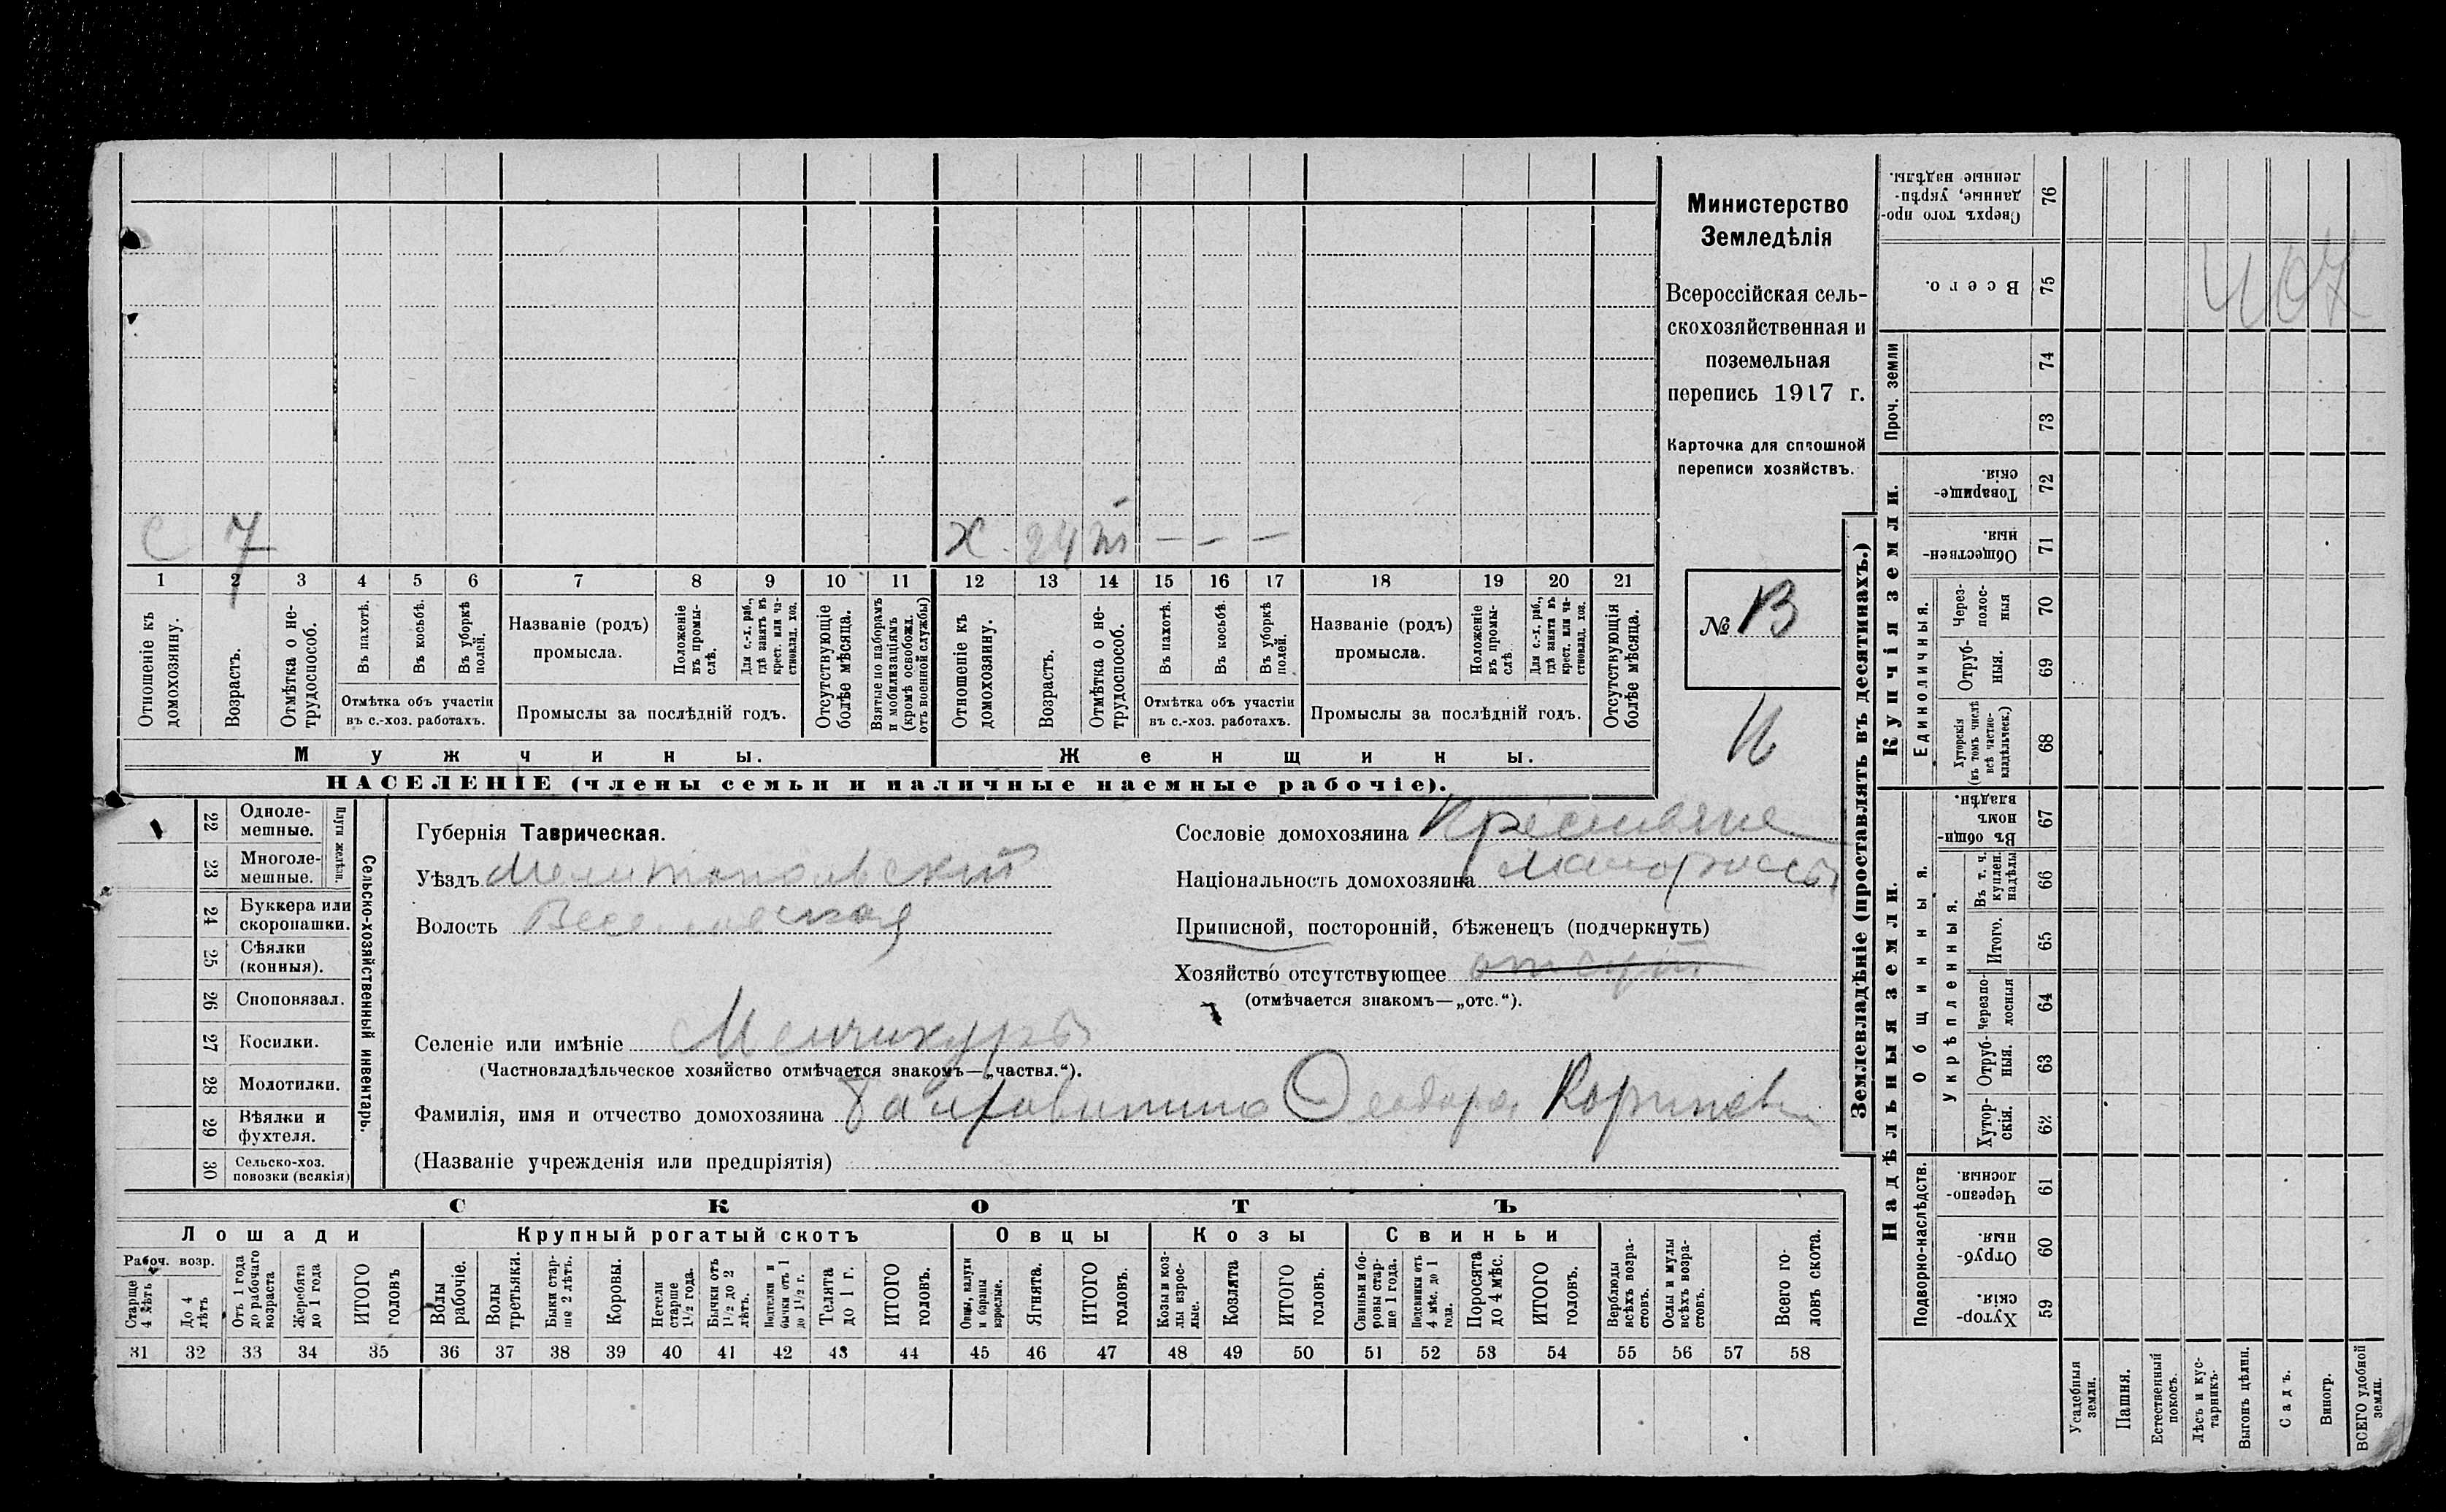 Министерство
Земледѣлія
Всероссійская сель-
скохозяйственная и
поземельная
перепись 1917 г.
Карточка для сплошной
переписи хозяйствъ.
№ В
И
С 7
Х 24 — — —
1 2 3 4 5 6 7 8 9 10 11 12 13 14 15 16 17 18 19 20 21
Отношеніе къ домохозяину.
Возрастъ.
Отмѣтка о не-трудоспособ.
Въ пахотѣ.
Въ косьбѣ.
Въ уборкѣ полей.
Отмѣтка объ участіи
въ с.-хоз. работахъ.
Названіе (родъ)
промысла.
Положеніе въ промы-слѣ.
Для с.-х. раб., гдѣ занятъ въ крест. или ча-стновлад. хоз.
Промыслы за послѣдній годъ.
Отсутствующіе болѣе мѣсяца.
Взятые по наборамъ и мобилизаціямъ (кромѣ освобожд. отъ военной службы)
Отношеніе къ домохозяину.
Возрастъ.
Отмѣтка о не-трудоспособ.
Въ пахотѣ.
Въ косьбѣ.
Въ уборкѣ полей.
Отмѣтка объ участіи
въ с.-хоз. работахъ.
Названіе (родъ)
промысла.
Положеніе въ промы-слѣ.
Для с.-х. раб., гдѣ занята въ крест. или ча-стновлад. хоз.
Промыслы за послѣдній годъ.
Отсутствующія болѣе мѣсяца.
Мужчины.
Женщины.
НАСЕЛЕНІЕ (члены семьи и наличные наемные рабочіе).
22 Одноле-
мешные.
23 Многоле-
мешные.
Плуги желѣзн.
24 Буккера или
скоропашки.
25 Сѣялки
(конныя).
26 Сноповязал.
27 Косилки.
28 Молотилки.
29 Вѣялки и
фухтеля.
30 Сельско-хоз.
повозки (всякія)
Сельско-хозяйственный инвентарь.
Губернія Таврическая.
Уѣздъ Мелитопольскій
Волость Веселовская
Сословіе домохозяина Крестьяне
Національность домохозяина малороссы
Приписной, посторонній, бѣженецъ (подчеркнуть)
Хозяйство отсутствующее
(отмѣчается знакомъ—„отс.“).
Селеніе или имѣніе Менчикуръ
(Частновладѣльческое хозяйство отмѣчается знакомъ—„частвл.“).
Фамилія, имя и отчество домохозяина Феодора
(Названіе учрежденія или предпріятія)
СКОТЪ
Лошади
Крупный рогатый скотъ
Овцы
Козы
Свиньи
Рабоч. возр.
Старше 4 лѣтъ
До 4 лѣтъ
Отъ 1 года до рабочаго возраста
Жеребята до 1 года
ИТОГО головъ
Волы рабочіе.
Волы третьяки.
Быки стар-ше 2 лѣтъ.
Коровы.
Нетели старше 1½ года.
Бычки отъ 1½ до 2 лѣтъ.
Подтелки и бычки отъ 1 до 1½ г.
Телята до 1 г.
ИТОГО головъ.
Овцы, валухи и бараны взрослые.
Ягнята.
ИТОГО головъ.
Козы и коз-лы взрос-лые.
Козлята
ИТОГО головъ.
Свиньи и бо-ровы стар-ше 1 года.
Подсвинки отъ 4 мѣс. до 1 года.
Поросята до 4 мѣс.
ИТОГО головъ.
Верблюды всѣхъ возра-стовъ.
Ослы и мулы всѣхъ возра-стовъ.
Всего го-ловъ скота.
31 32 33 34 35 36 37 38 39 40 41 42 43 44 45 46 47 48 49 50 51 52 53 54 55 56 57 58
Землевладѣніе (проставлять въ десятинахъ.)
Надѣльныя земли.
Купчія земли.
Проч. земли
Подворно-наслѣдств.
Общинныя.
Укрѣпленныя.
Единоличныя.
Сверхъ того про-данные, укрѣп-ленные надѣлы. 76
Всего. 75
74
73
Товарище-скія. 72
Обществен-ныя. 71
Через-полос-ныя 70
Отруб-ныя. 69
Хуторскія (въ томъ числѣ всѣ частно-владѣльческ.) 68
Въ общин-номъ владѣн. 67
Въ т. ч. куплен. надѣлы 66
Итого. 65
Черезпо-лосныя 64
Отруб-ныя. 63
Хутор-скія. 62
Черезпо-лосныя. 61
Отруб-ныя. 60
Хутор-скія. 59
Усадебныя земли.
Пашня.
Естественный покосъ.
Лѣсъ и кус-тарникъ.
Выгонъ цѣлин.
Садъ.
Виногр.
ВСЕГО удобной земли.